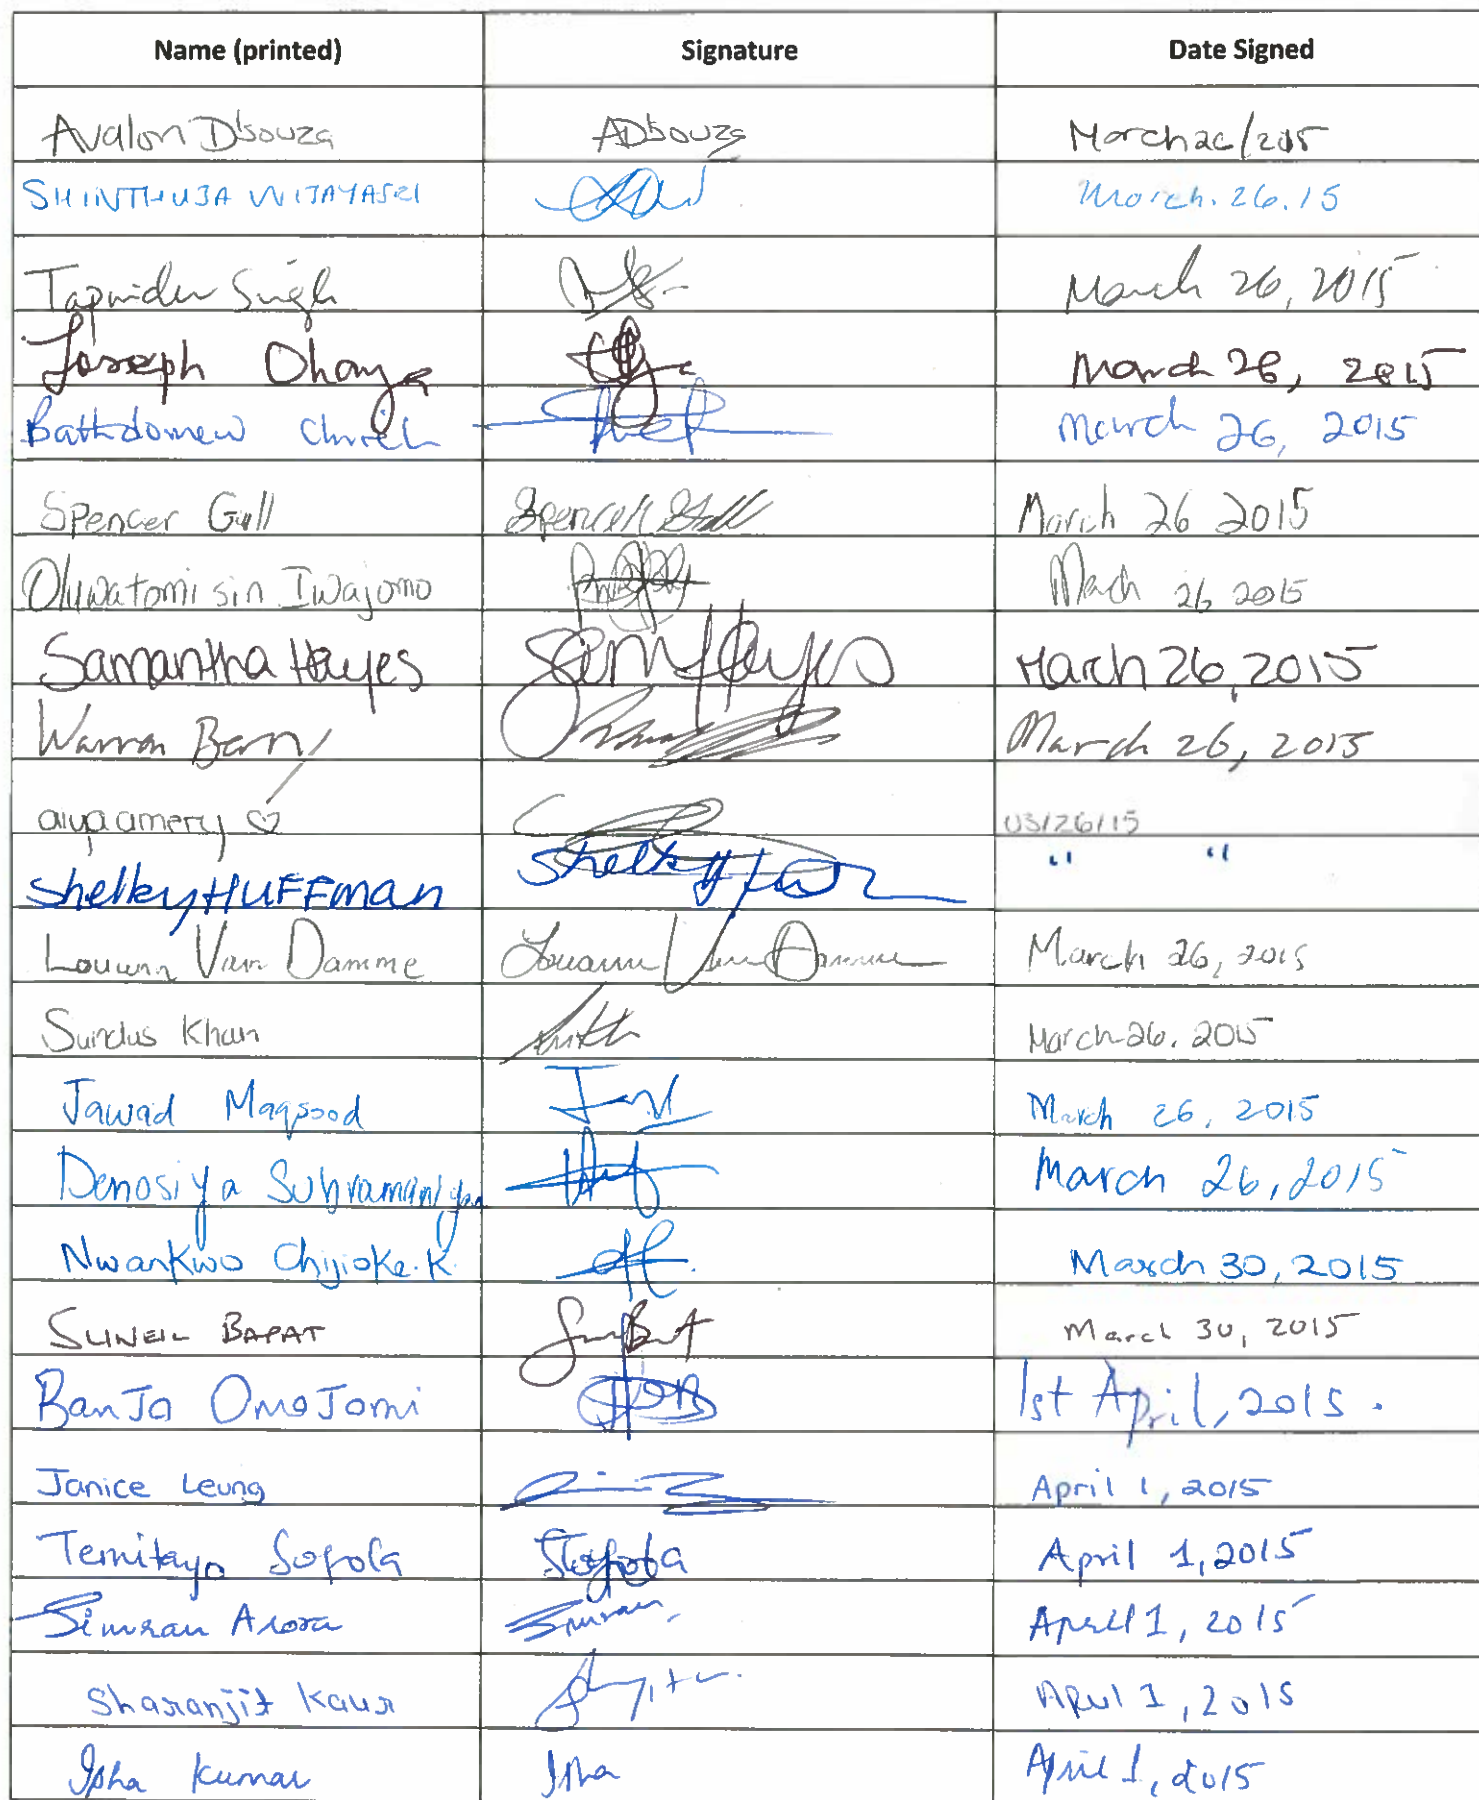 Name (printed) Signature Date Signed
Avalon D'souza ADsouza March 26/2015
SHINTHUJA WIJAYASRI March. 26. 15
Singh March 26, 2015
Joseph March 26, 2015
March 26, 2015
Spencer Gull Spencer Gull March 26 2015
Oluwatomisin Iwajomo March 26 2015
Samantha Hayes Sam Hayes March 26, 2015
Warren Barry March 26, 2015
amery ♡ 03/26/15
Shelley HUFFman Shelley " "
Louann Van Damme Louann Van Damme March 26, 2015
Sundus Khan March 26, 2015
Jawad Maqsood March 26, 2015
Denosiya Subramaniyan March 26, 2015
Nwankwo Chijioke.K. March 30, 2015
SUNEIL BAPAT March 30, 2015
BanJo OmoJomi 1st April, 2015.
Janice Leung April 1, 2015
Temitayo Sofola Sofola April 1, 2015
Simran Arora Simran April 1, 2015
Sharanjit Kaur April 1, 2015
Isha Kumar Isha April 1, 2015